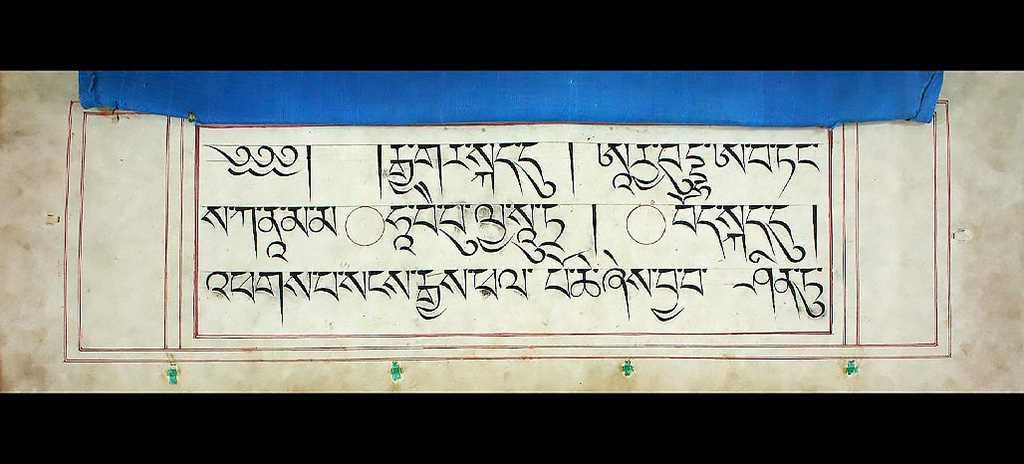 ༄༅༅། །རྒྱ་གར་སྐད་དུ། ཨཱརྱ་བུདྡྷ་ཨ་བ་ཏང་
ས་ཀ་ནཱ་མ་མ་ཧཱ་བཻ་པུ་ལྱ་སཱུ་ཏྲ། བོད་སྐད་དུ།
འཕགས་པ་སངས་རྒྱས་ཕལ་པོ་ཆེ་ཞེས་བྱ་བ་ཤིན་ཏུ